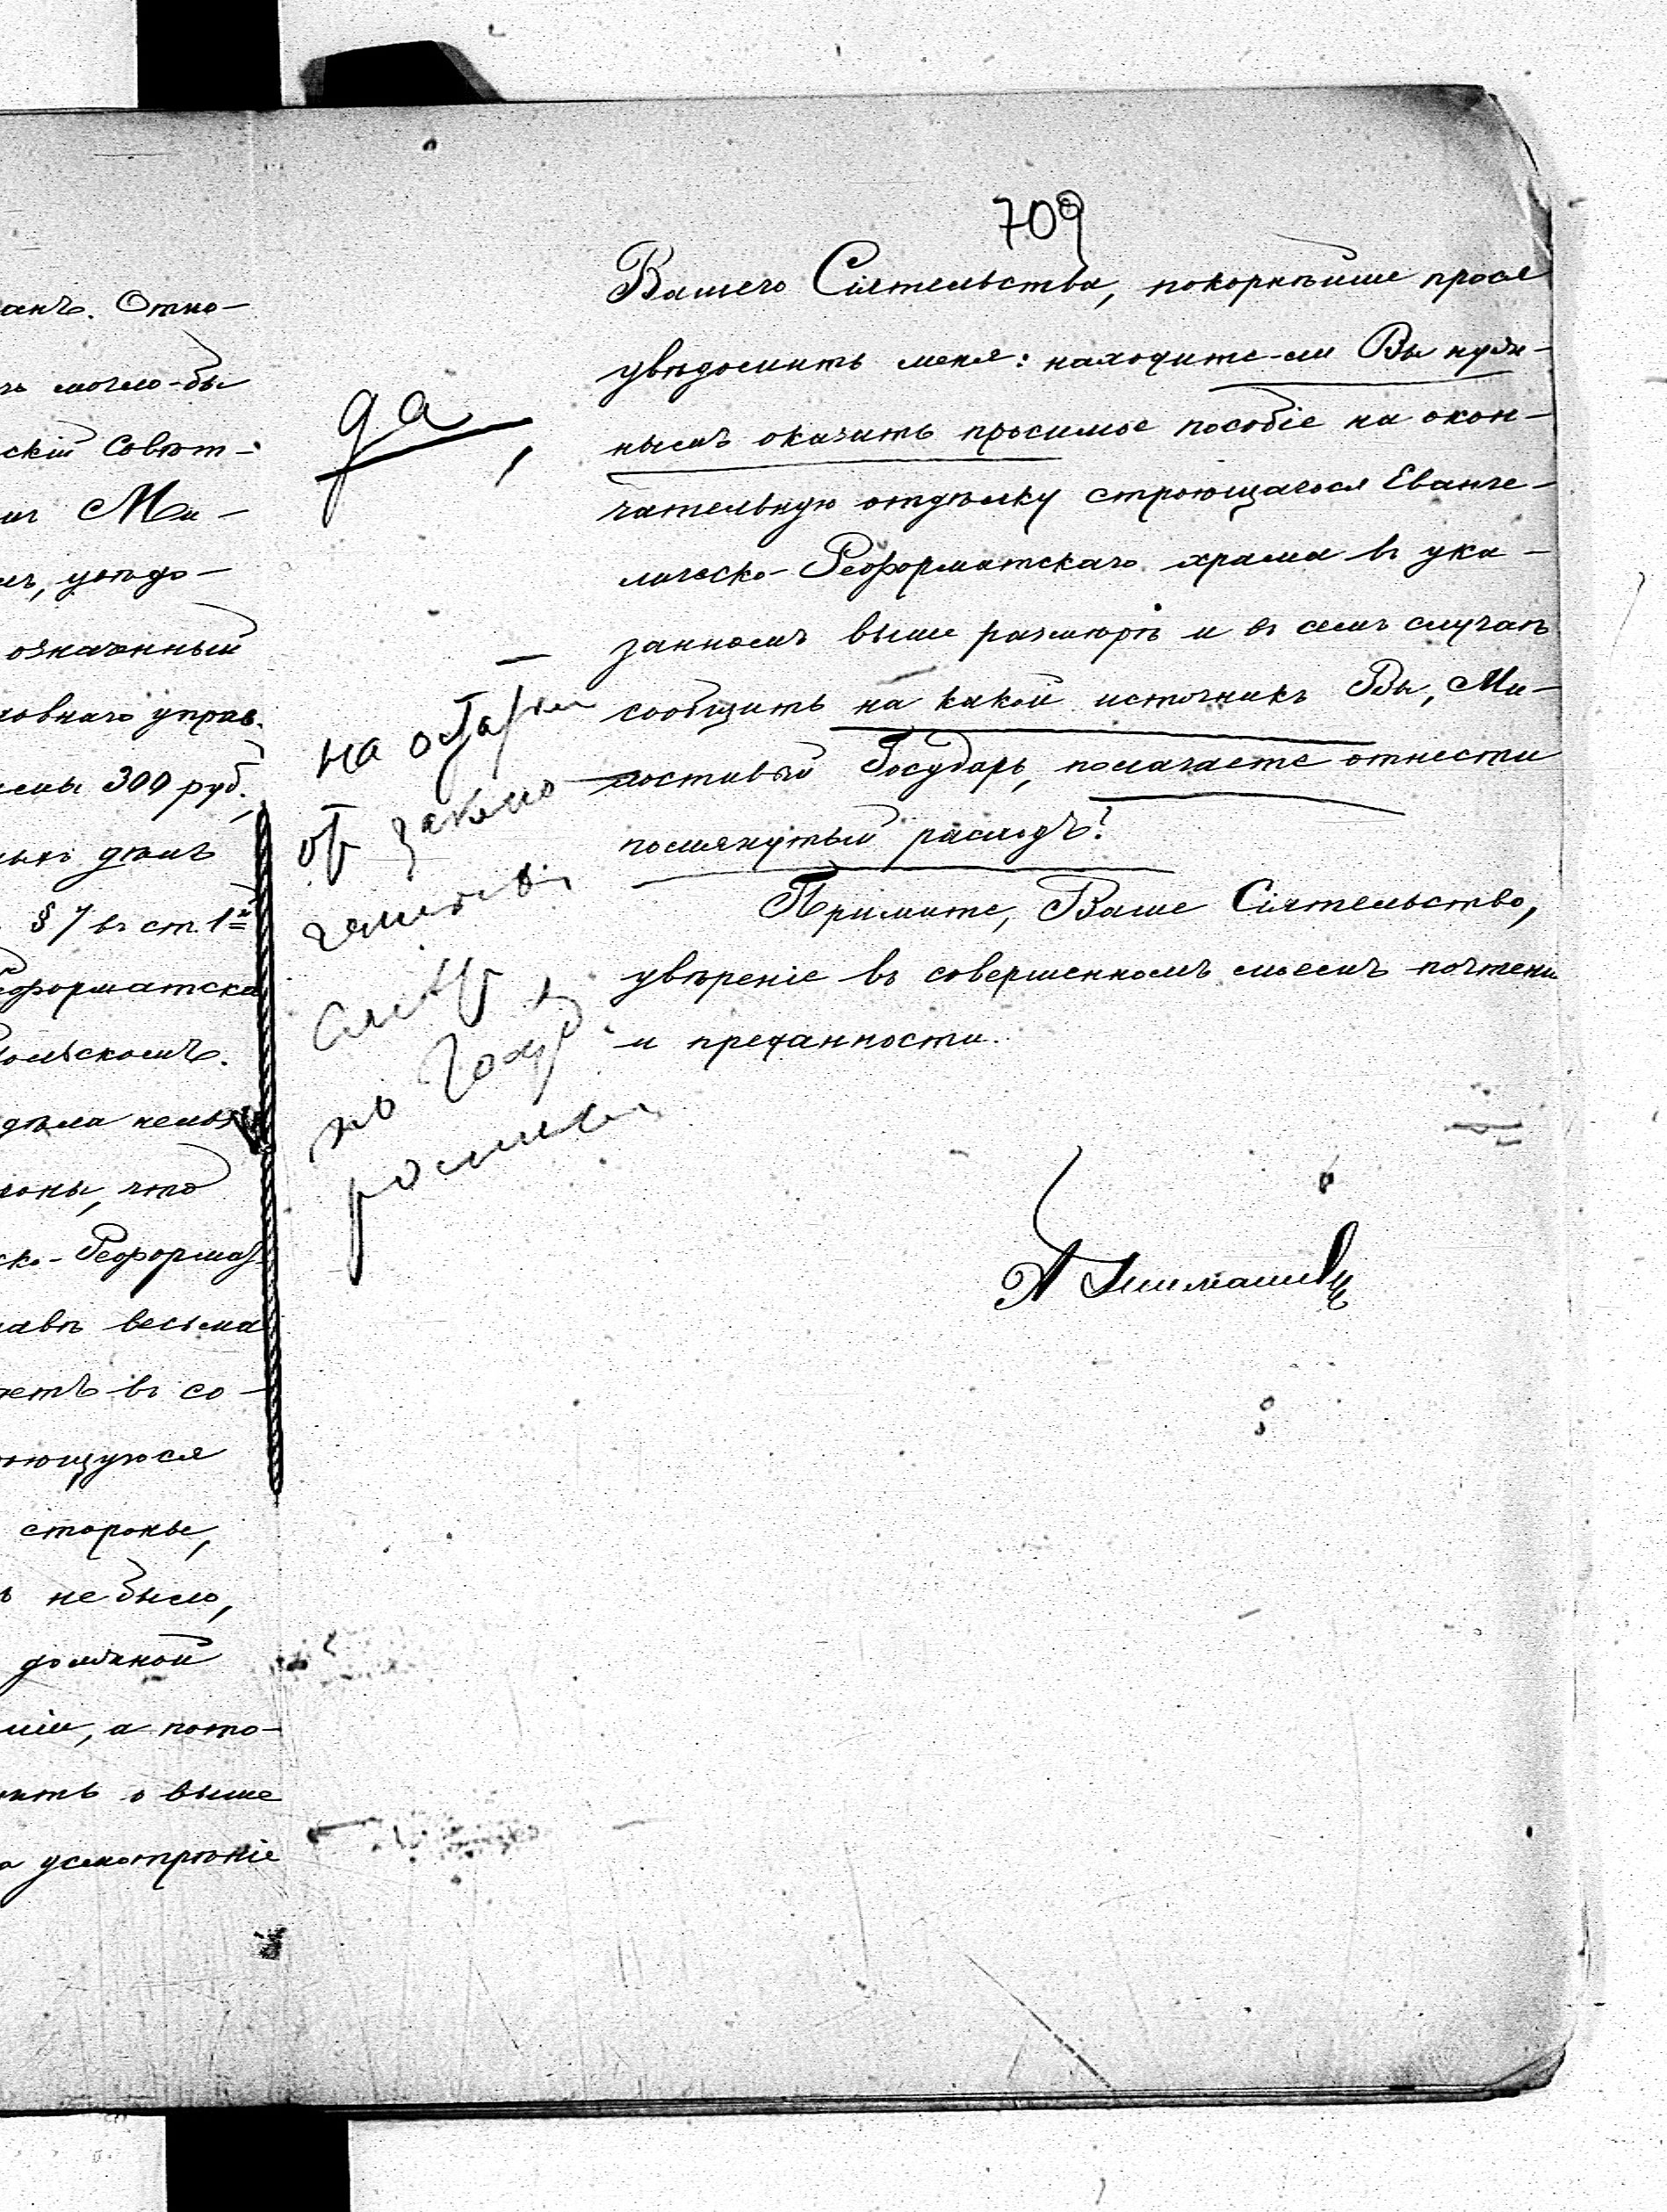 анъ. Отно-
могло-бы
скій Совѣт-
Ми-
увѣдо-
означенный
ловнаго управ.
300 руб.
дѣлъ
§ 7 въ ст. 1й
еформатска
ольскомъ.
дѣла нельзя
роны, что
ско-Реформат
лавѣ весьма
аетъ въ со-
ающуюся
стороны,
не было,
должной
ніи, а пото-
ить о выше
усмотрѣніе
709
Вашего Сіятельства, покорнѣйше прося
увѣдомить меня: находите-ли Вы нуж-
нымъ оказать просимое пособіе на окон-
чательную отдѣлку строющагося Еванге-
лическо-Реформатскаго храма въ ука-
занномъ выше размѣрѣ и въ семъ случаѣ
сообщить на какой источникъ Вы, Ми-
лостивый Государь, полагаете отнести
помянутый расходъ?
Примите, Ваше Сіятельство,
увѣреніе въ совершенномъ моемъ почтеніи
и преданности.
А Тимашевъ
да,
на остатки
отъ заключ
смѣтъ